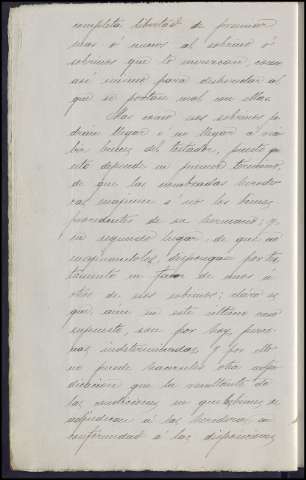 completa libertad de premiar
mas ó menos al sobrino ó
sobrinos que lo merezcan, como
así mismo para desheredar al
que se portase mal con ellas.
Mas como esos sobrinos po
drian llegar ó no llegar á reci
bir bienes del testador, puesto que
esto depende en primer termino,
de que las nombradas herede
ras enajenen ó no los bienes
procedentes de su hermano; y,
en segundo lugar, de que no
enajenandolos, dispongan por tes
tamento en favor de unos ó
otros de sus sobrinos; claro es
que, aun en este ultimo caso
supuesto, son por hoy, perso
nas indeterminadas, y por ello
no puede hacerse otra adju
dicacion que la resultante de
las condiciones en que los bienes se
adjudican á las herederas, en
conformidad á las disposiciones